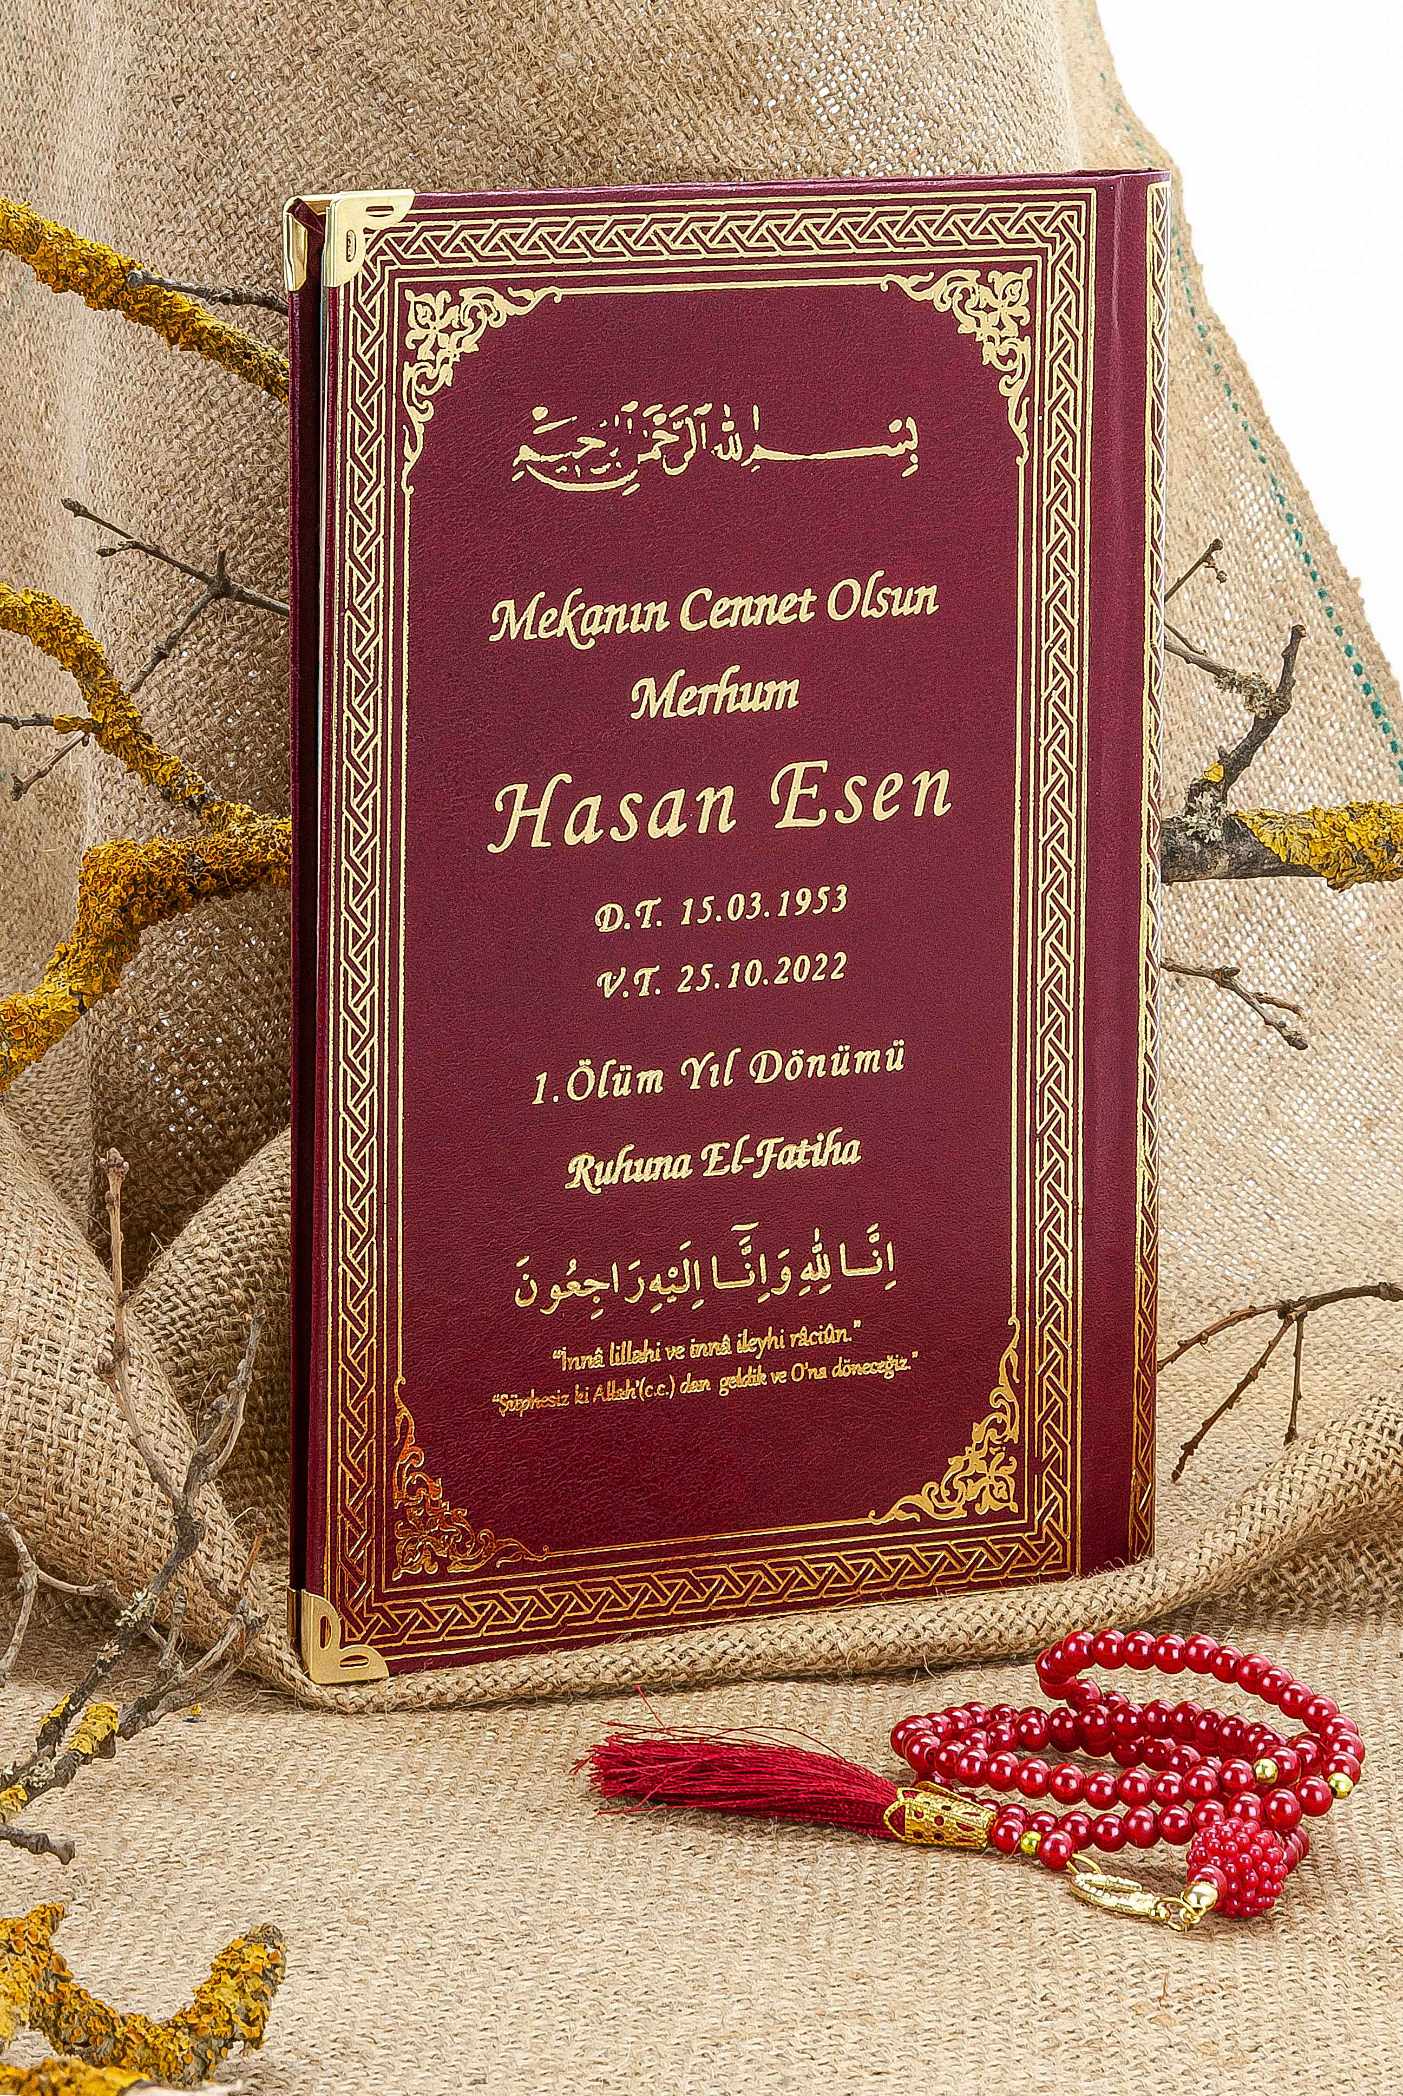 بِسْمِ اللهِ الرَّحْمٰنِ الرَّحِيمِ
Mekanın Cennet Olsun
Merhum
Hasan Esen
D.T. 15.03.1953
V.T. 25.10.2022
1.Ölüm Yıl Dönümü
Ruhuna El-Fatiha
اِنَّا لِلّٰهِ وَاِنَّٓا اِلَيْهِ رَاجِعُونَ
“İnnâ lillahi ve innâ ileyhi râciûn.”
“Şüphesiz ki Allah'(c.c.) dan geldik ve O'na döneceğiz.”